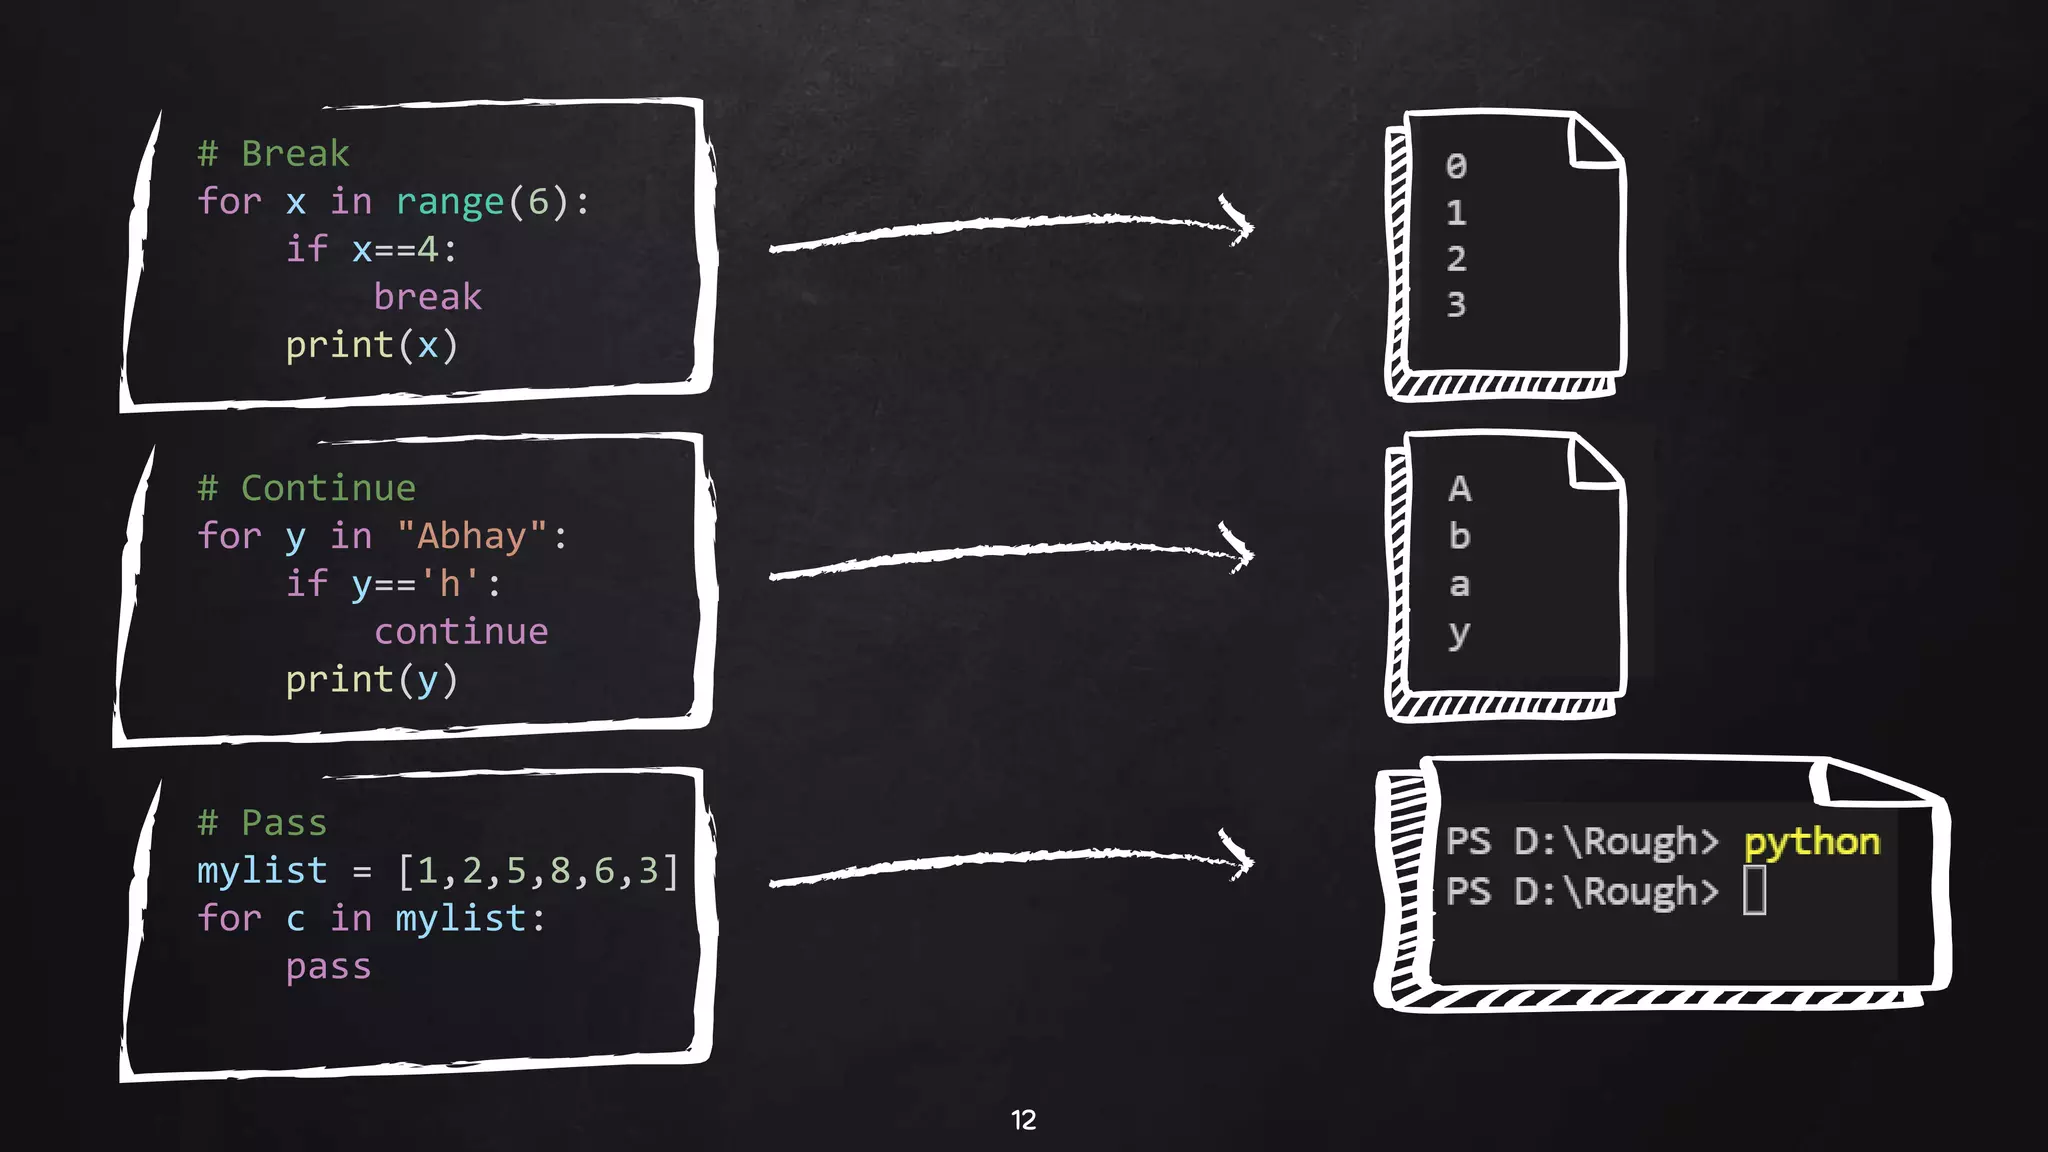 # Break
for x in range(6):
    if x==4:
        break
    print(x)
0
1
2
3
# Continue
for y in "Abhay":
    if y=='h':
        continue
    print(y)
A
b
a
y
# Pass
mylist = [1,2,5,8,6,3]
for c in mylist:
    pass
PS D:\Rough> python
PS D:\Rough>
12